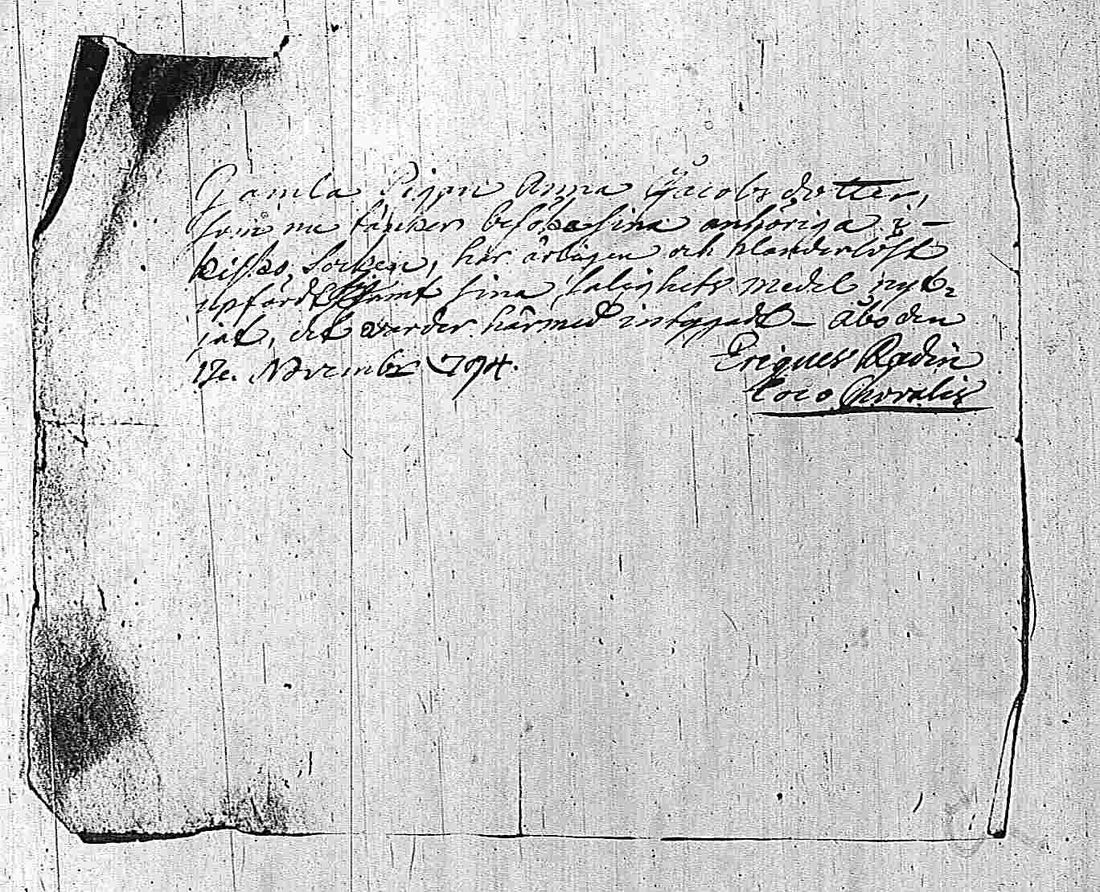 Gamla Pigan Anna Jacobs dotter,
som nu tänker besöka sina anhöriga i
Kisko, Socken, har ärligen och klanderlöst
upfördt samt sina salighets medel nyt-
jat, det warder härmed intygadt – Åbo den
17e. November 1794.
Ericus Radin
loco Moralis